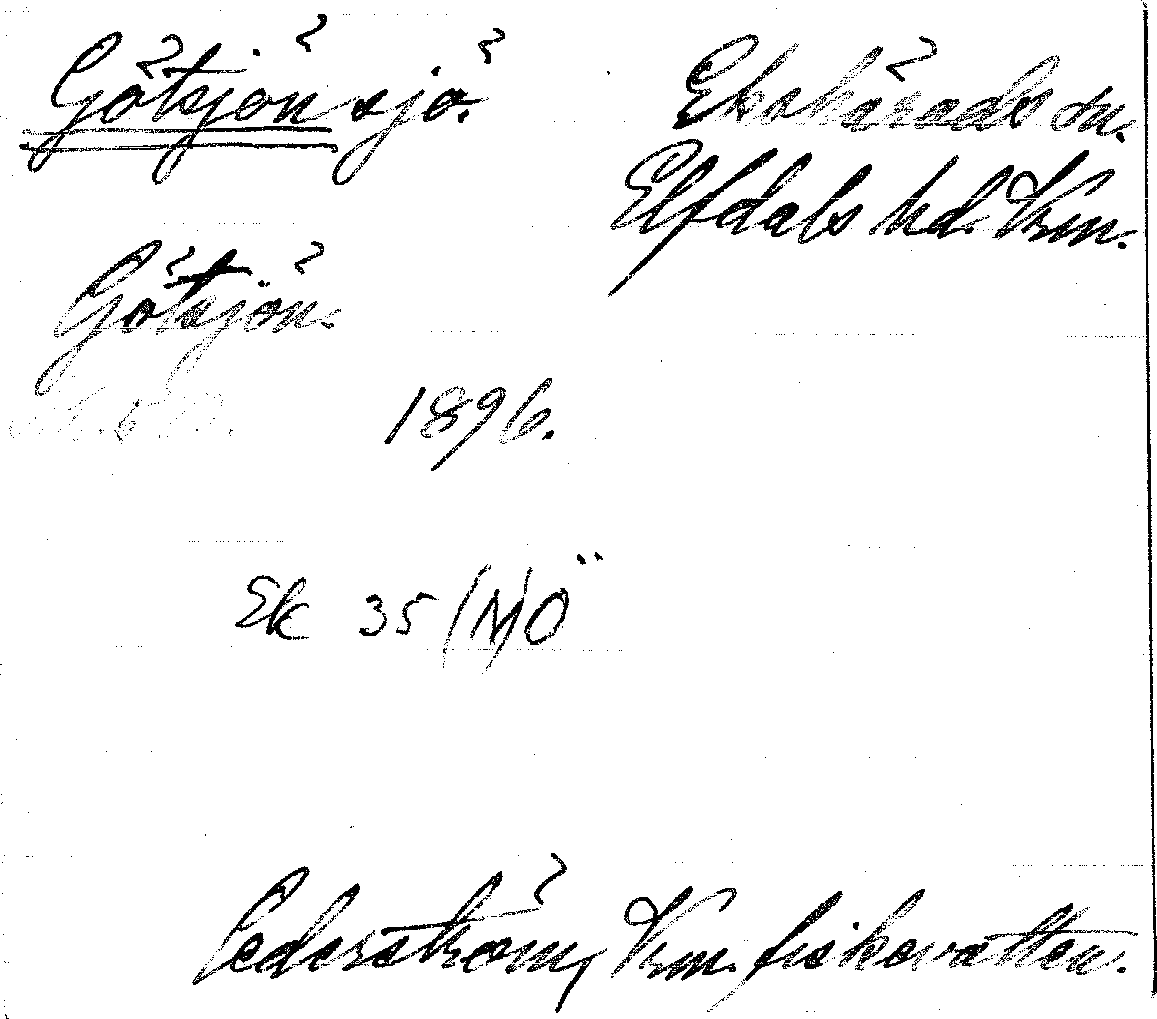 Götsjön sjö. Ekshärads sn.
Elfdals hd. Vrm.
Götsjön.
1896.
Ek 35 (N)Ö
Cederström, Vrm. fiskevatten.